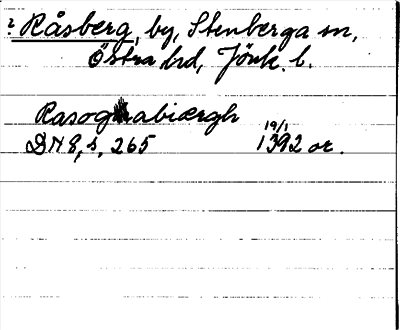 ? Råsberg, by, Stenberga sn,
Östra hd, Jönk. l.
Rasognabiærgh
19/1
DN 8, s, 265 1392 or.